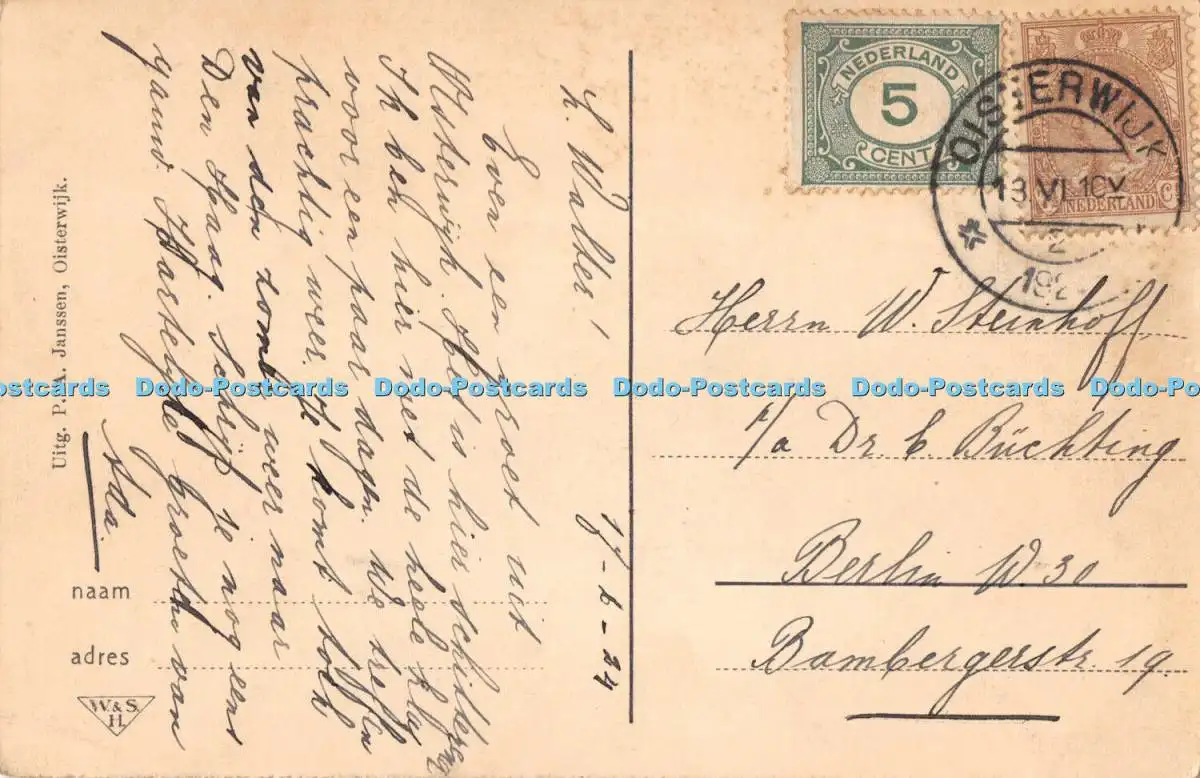 L. Walter! 17-6-24
Even een groet uit
Oisterwijk. Het is hier schitterend
Ik ben hier met de heele klas
voor een paar dagen. We treffen
prachtig weer. Je komt toch
van den zomer weer naar
Den Haag. Schrijf je nog eens
gauw. Hartelijke Groeten van
Ada.
Uitg. P. A. Janssen, Oisterwijk.
naam
adres
W. & S.
H.
NEDERLAND
5
CENT
NEDERLAND
OISTERWIJK
192
Herrn W. Steinhoff
p/a Dr. E. Büchting
Berlin W. 30
Bambergerstr. 19.
Dodo-Postcards Dodo-Postcards Dodo-Postcards Dodo-Postcards Dodo-Postcards